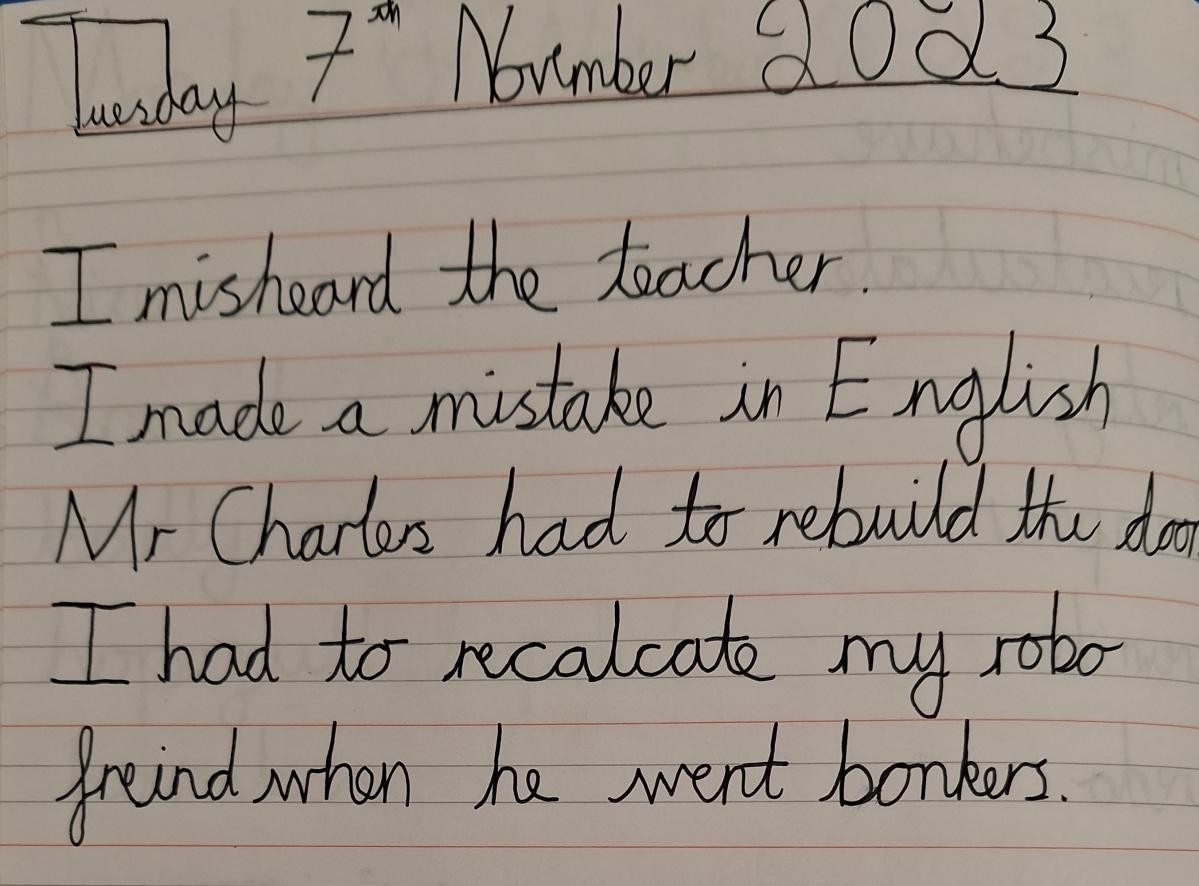 Tuesday 7th November 2023
I misheard the teacher.
I made a mistake in English
Mr Charles had to rebuild the door
I had to recalcate my robo
freind when he went bonkers.